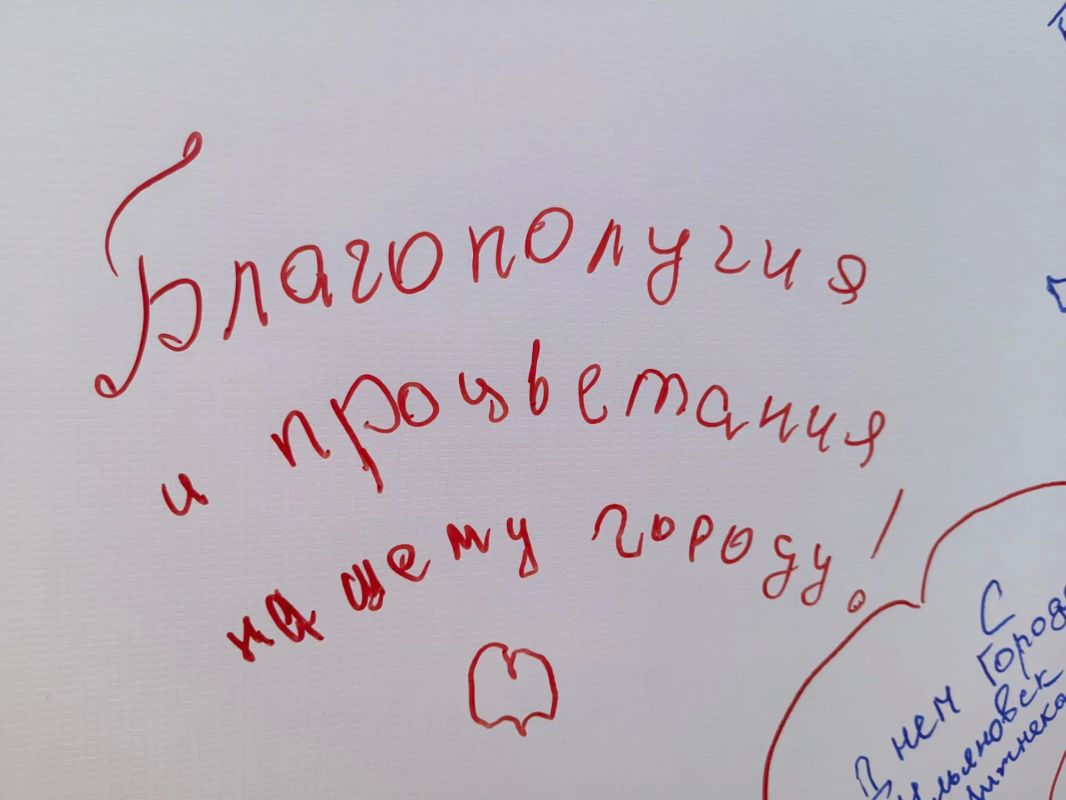 Благополучия
и процветания
нашему городу!
С
Днем города
Ульяновск